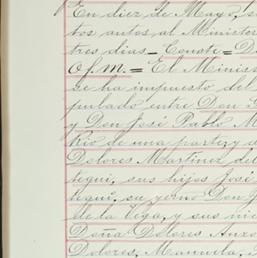 En diez de Mayo, s
tos autos al Minister
tres dias – Conste = D
O.f.m. = El Minis
se ha impuesto del
pulado entre Don
y Don José Pablo M
Rio de una parte, y d
Dolores Martinez del
tegui, sus hijos José
tegui, su yerno Don J
de la Vega, y sus nie
Doña Dolores Anzo
Dolores, Manuela, i